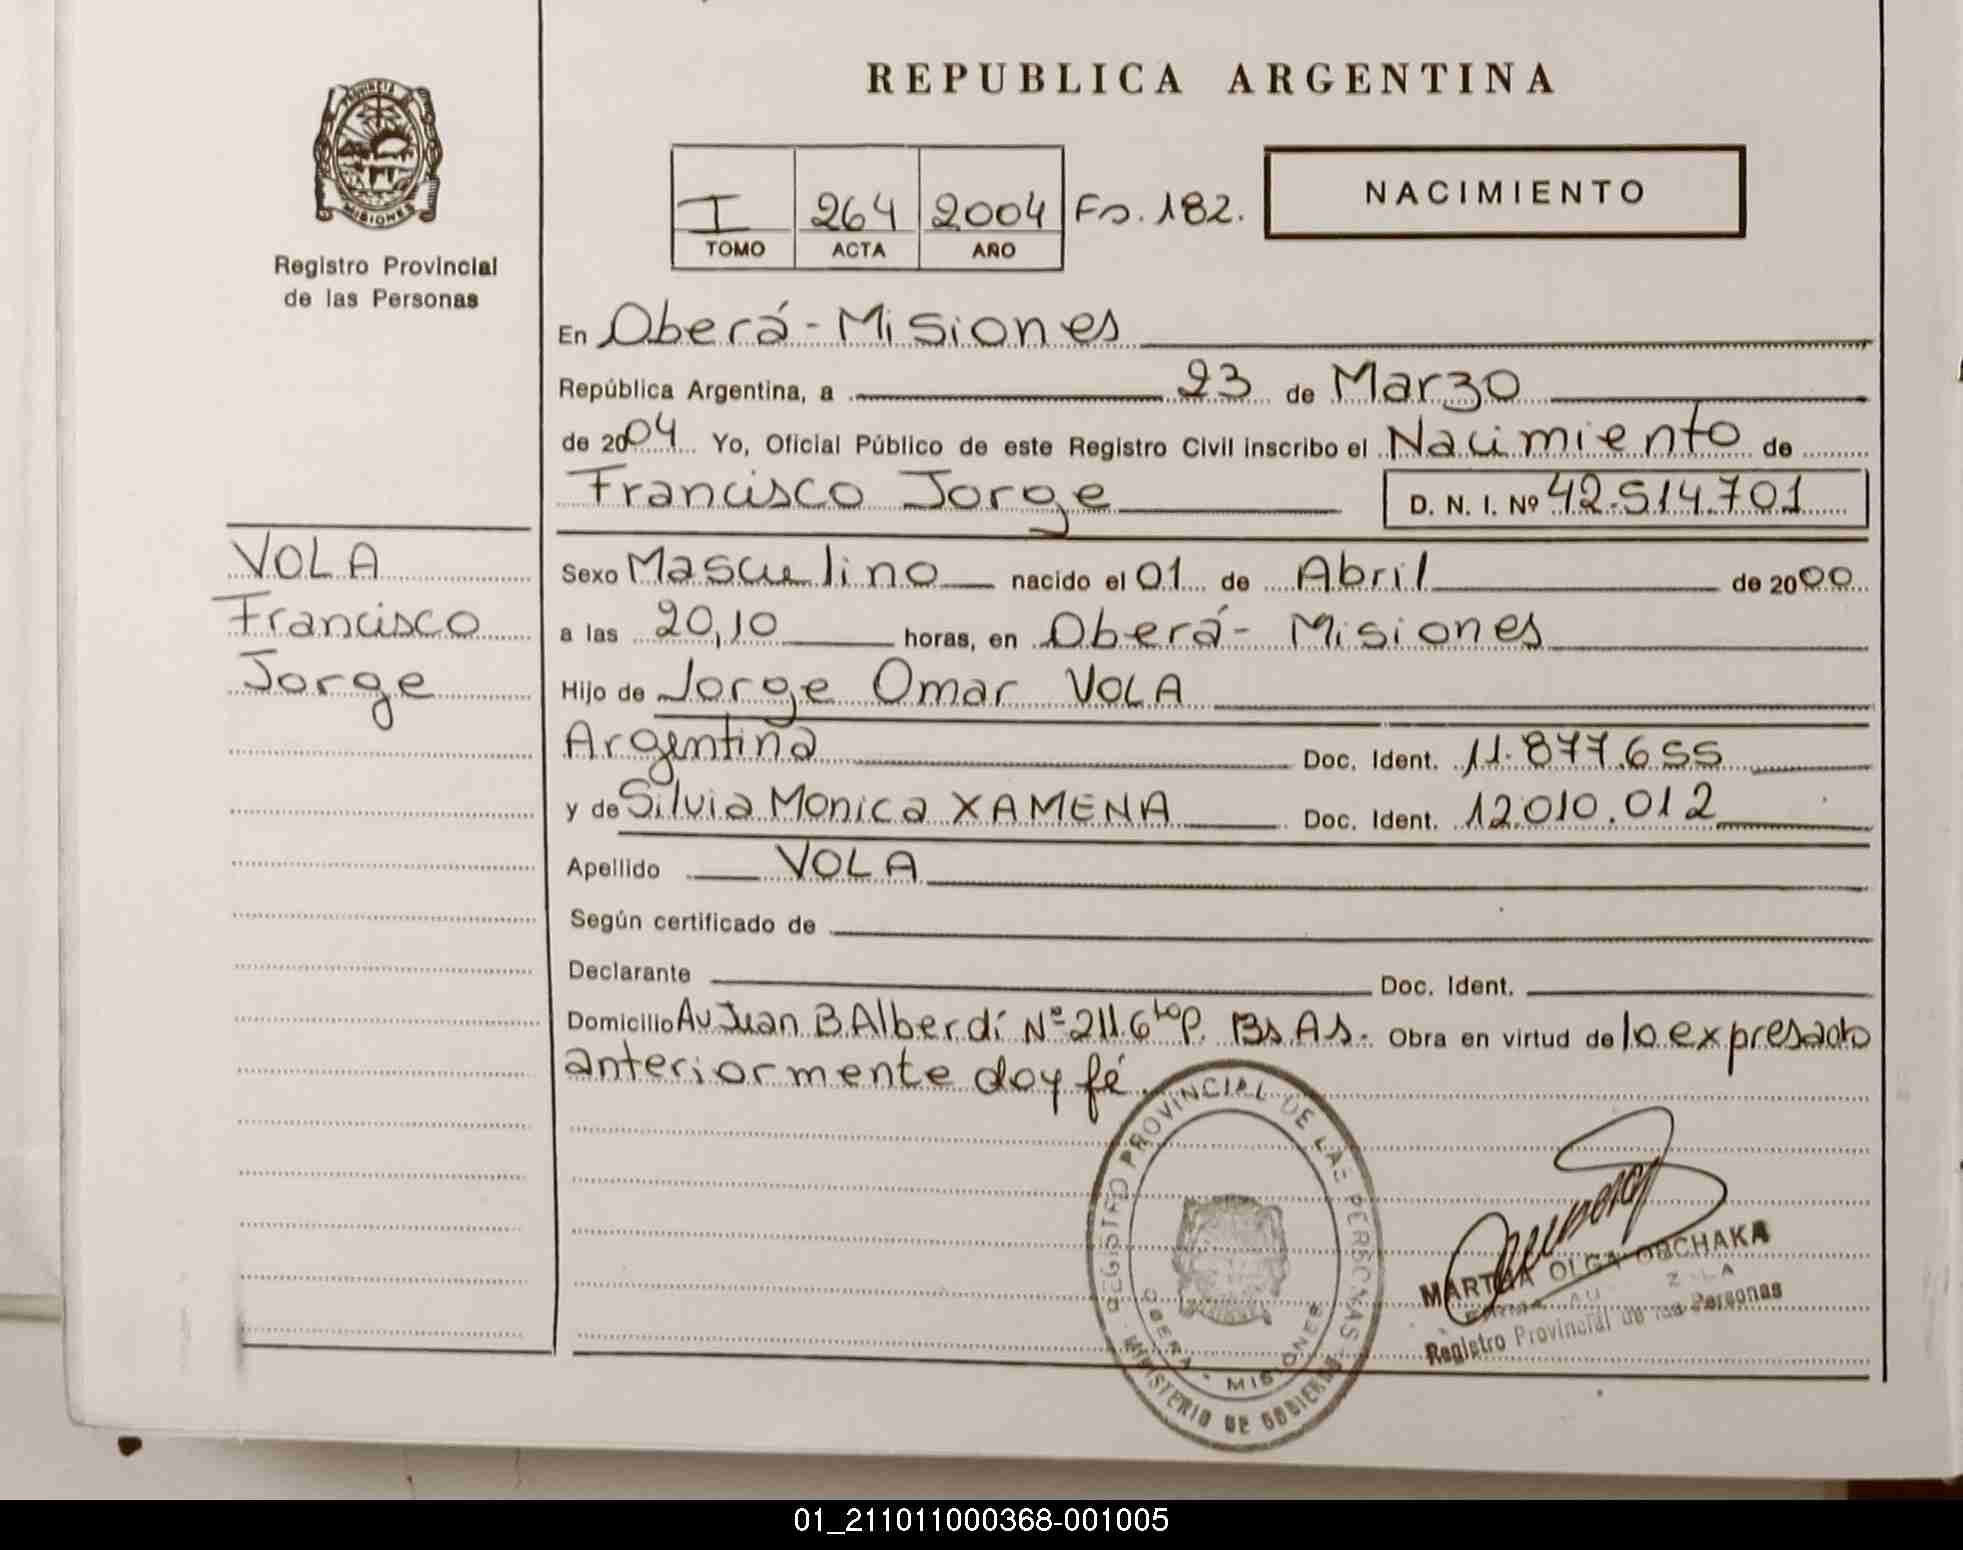 REPUBLICA ARGENTINA
PROVINCIA DE
MISIONES
Registro Provincial
de las Personas
I 264 2004 Fs. 182.
TOMO ACTA AÑO
NACIMIENTO
En Oberá - Misiones
República Argentina, a 23 de Marzo
de 2004 Yo, Oficial Público de este Registro Civil inscribo el Nacimiento de
Francisco Jorge D. N. I. Nº 42.514.701
VOLA
Francisco
Jorge
Sexo Masculino nacido el 01 de Abril de 2000
a las 20,10 horas, en Oberá - Misiones
Hijo de Jorge Omar VOLA
Argentina Doc. Ident. 11.877.655
y de Silvia Monica XAMENA Doc. Ident. 12.010.012
Apellido VOLA
Según certificado de
Declarante Doc. Ident.
Domicilio Av Juan B. Alberdí Nº 211. 6to p. Bs As. Obra en virtud de lo expresado
anteriormente doy fé.
REGISTRO PROVINCIAL DE LAS PERSONAS
OBERA - MISIONES
MINISTERIO DE GOBIERNO
MARTHA OLGA OBCHAKA
Registro Provincial de las Personas
01_211011000368-001005